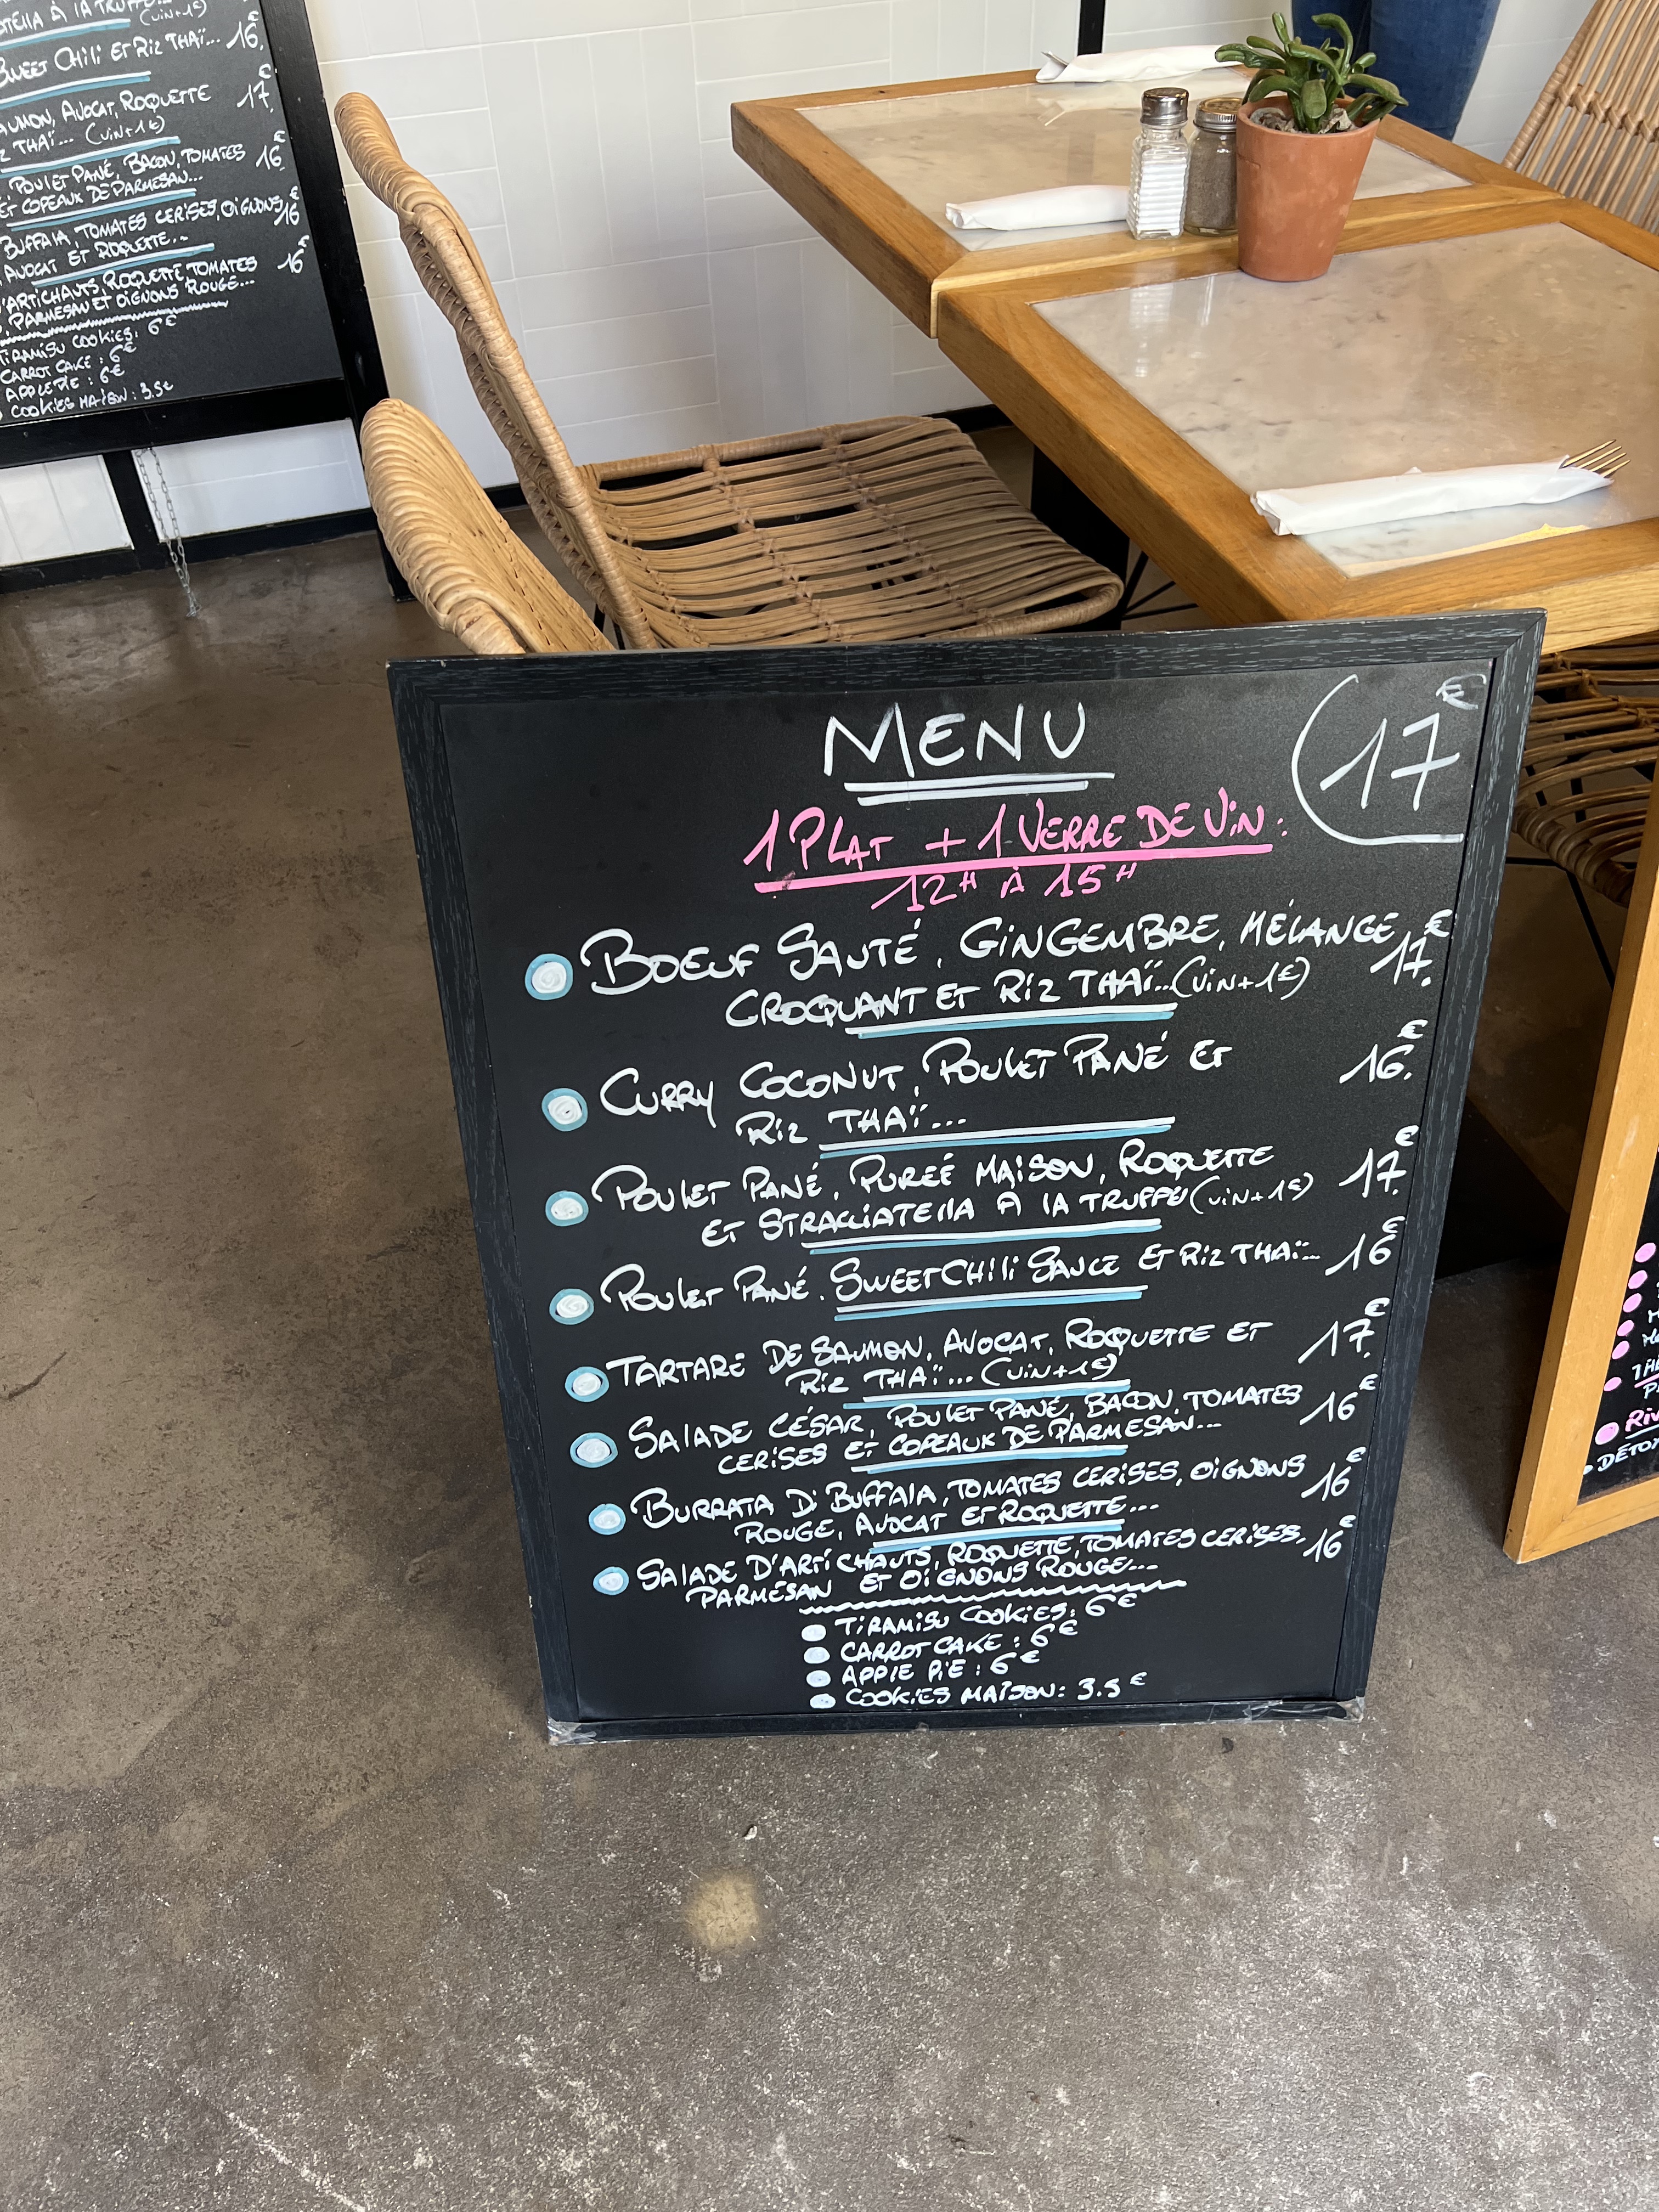 MENU
17€
1 PLAT + 1 VERRE DE VIN :
12H À 15H
BOEUF SAUTÉ, GINGEMBRE, MÉLANGE 17€
CROQUANT ET RIZ THAÏ...(VIN+1€)
CURRY COCONUT, POULET PANÉ ET 16€
RIZ THAÏ...
POULET PANÉ, PUREÉ MAISON, ROQUETTE 17€
ET STRACCIATELLA À LA TRUFFE (VIN+1€)
POULET PANÉ, SWEET CHILI SAUCE ET RIZ THAÏ... 16€
TARTARE DE SAUMON, AVOCAT, ROQUETTE ET 17€
RIZ THAÏ... (VIN+1€)
SALADE CÉSAR, POULET PANÉ, BACON, TOMATES 16€
CERISES ET COPEAUX DE PARMESAN...
BURRATA DI BUFFALA, TOMATES CERISES, OIGNONS 16€
ROUGE, AVOCAT ET ROQUETTE...
SALADE D'ARTICHAUTS, ROQUETTE, TOMATES CERISES, 16€
PARMESAN ET OIGNONS ROUGE...
TIRAMISU COOKIES: 6€
CARROT CAKE : 6€
APPLE PIE : 6€
COOKIES MAISON: 3.5€
À LA TRUFFE (VIN+1€)
SWEET CHILI ET RIZ THAÏ... 16€
AVOCAT, ROQUETTE 17€
THAÏ... (VIN+1€)
POULET PANÉ, BACON, TOMATES 16€
ET COPEAUX DE PARMESAN...
BUFFALA, TOMATES CERISES, OIGNONS 16€
AVOCAT ET ROQUETTE...
D'ARTICHAUTS, ROQUETTE, TOMATES 16€
PARMESAN ET OIGNONS ROUGE...
TIRAMISU COOKIES: 6€
CARROT CAKE : 6€
APPLE PIE : 6€
COOKIES MAISON : 3.5€